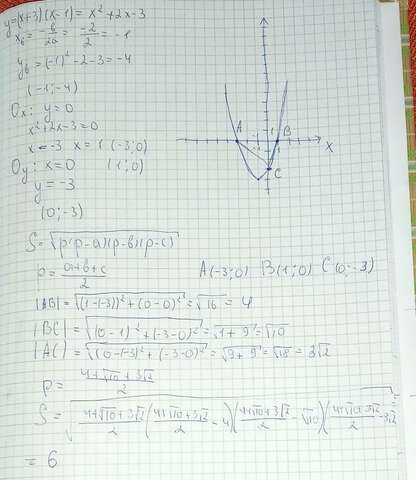 y=(x+3)(x-1) = x² + 2x - 3
x₆ = -b/2a = -2/2 = -1
y₆ = (-1)² - 2 - 3 = -4
(-1; -4)
Ox: y=0
x² + 2x - 3 = 0
x = -3 x = 1 (-3; 0)
Oy: x=0 (1; 0)
y = -3
(0; -3)
A B C x 1 -1 1
S = √(p(p-a)(p-b)(p-c))
p = (a+b+c)/2 A(-3; 0) B(1; 0) C(0; -3)
|AB| = √((1-(-3))² + (0-0)²) = √16 = 4
|BC| = √((0-1)² + (-3-0)²) = √(1+9) = √10
|AC| = √((0-(-3))² + (-3-0)²) = √(9+9) = √18 = 3√2
p = (4+√10+3√2)/2
S = √((4+√10+3√2)/2 ((4+√10+3√2)/2 - 4)((4+√10+3√2)/2 - √10)((4+√10+3√2)/2 - 3√2)) =
= 6